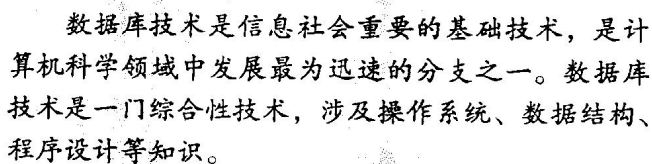 数据库技术是信息社会重要的基础技术，是计
算机科学领域中发展最为迅速的分支之一。数据库
技术是一门综合性技术，涉及操作系统、数据结构、
程序设计等知识。